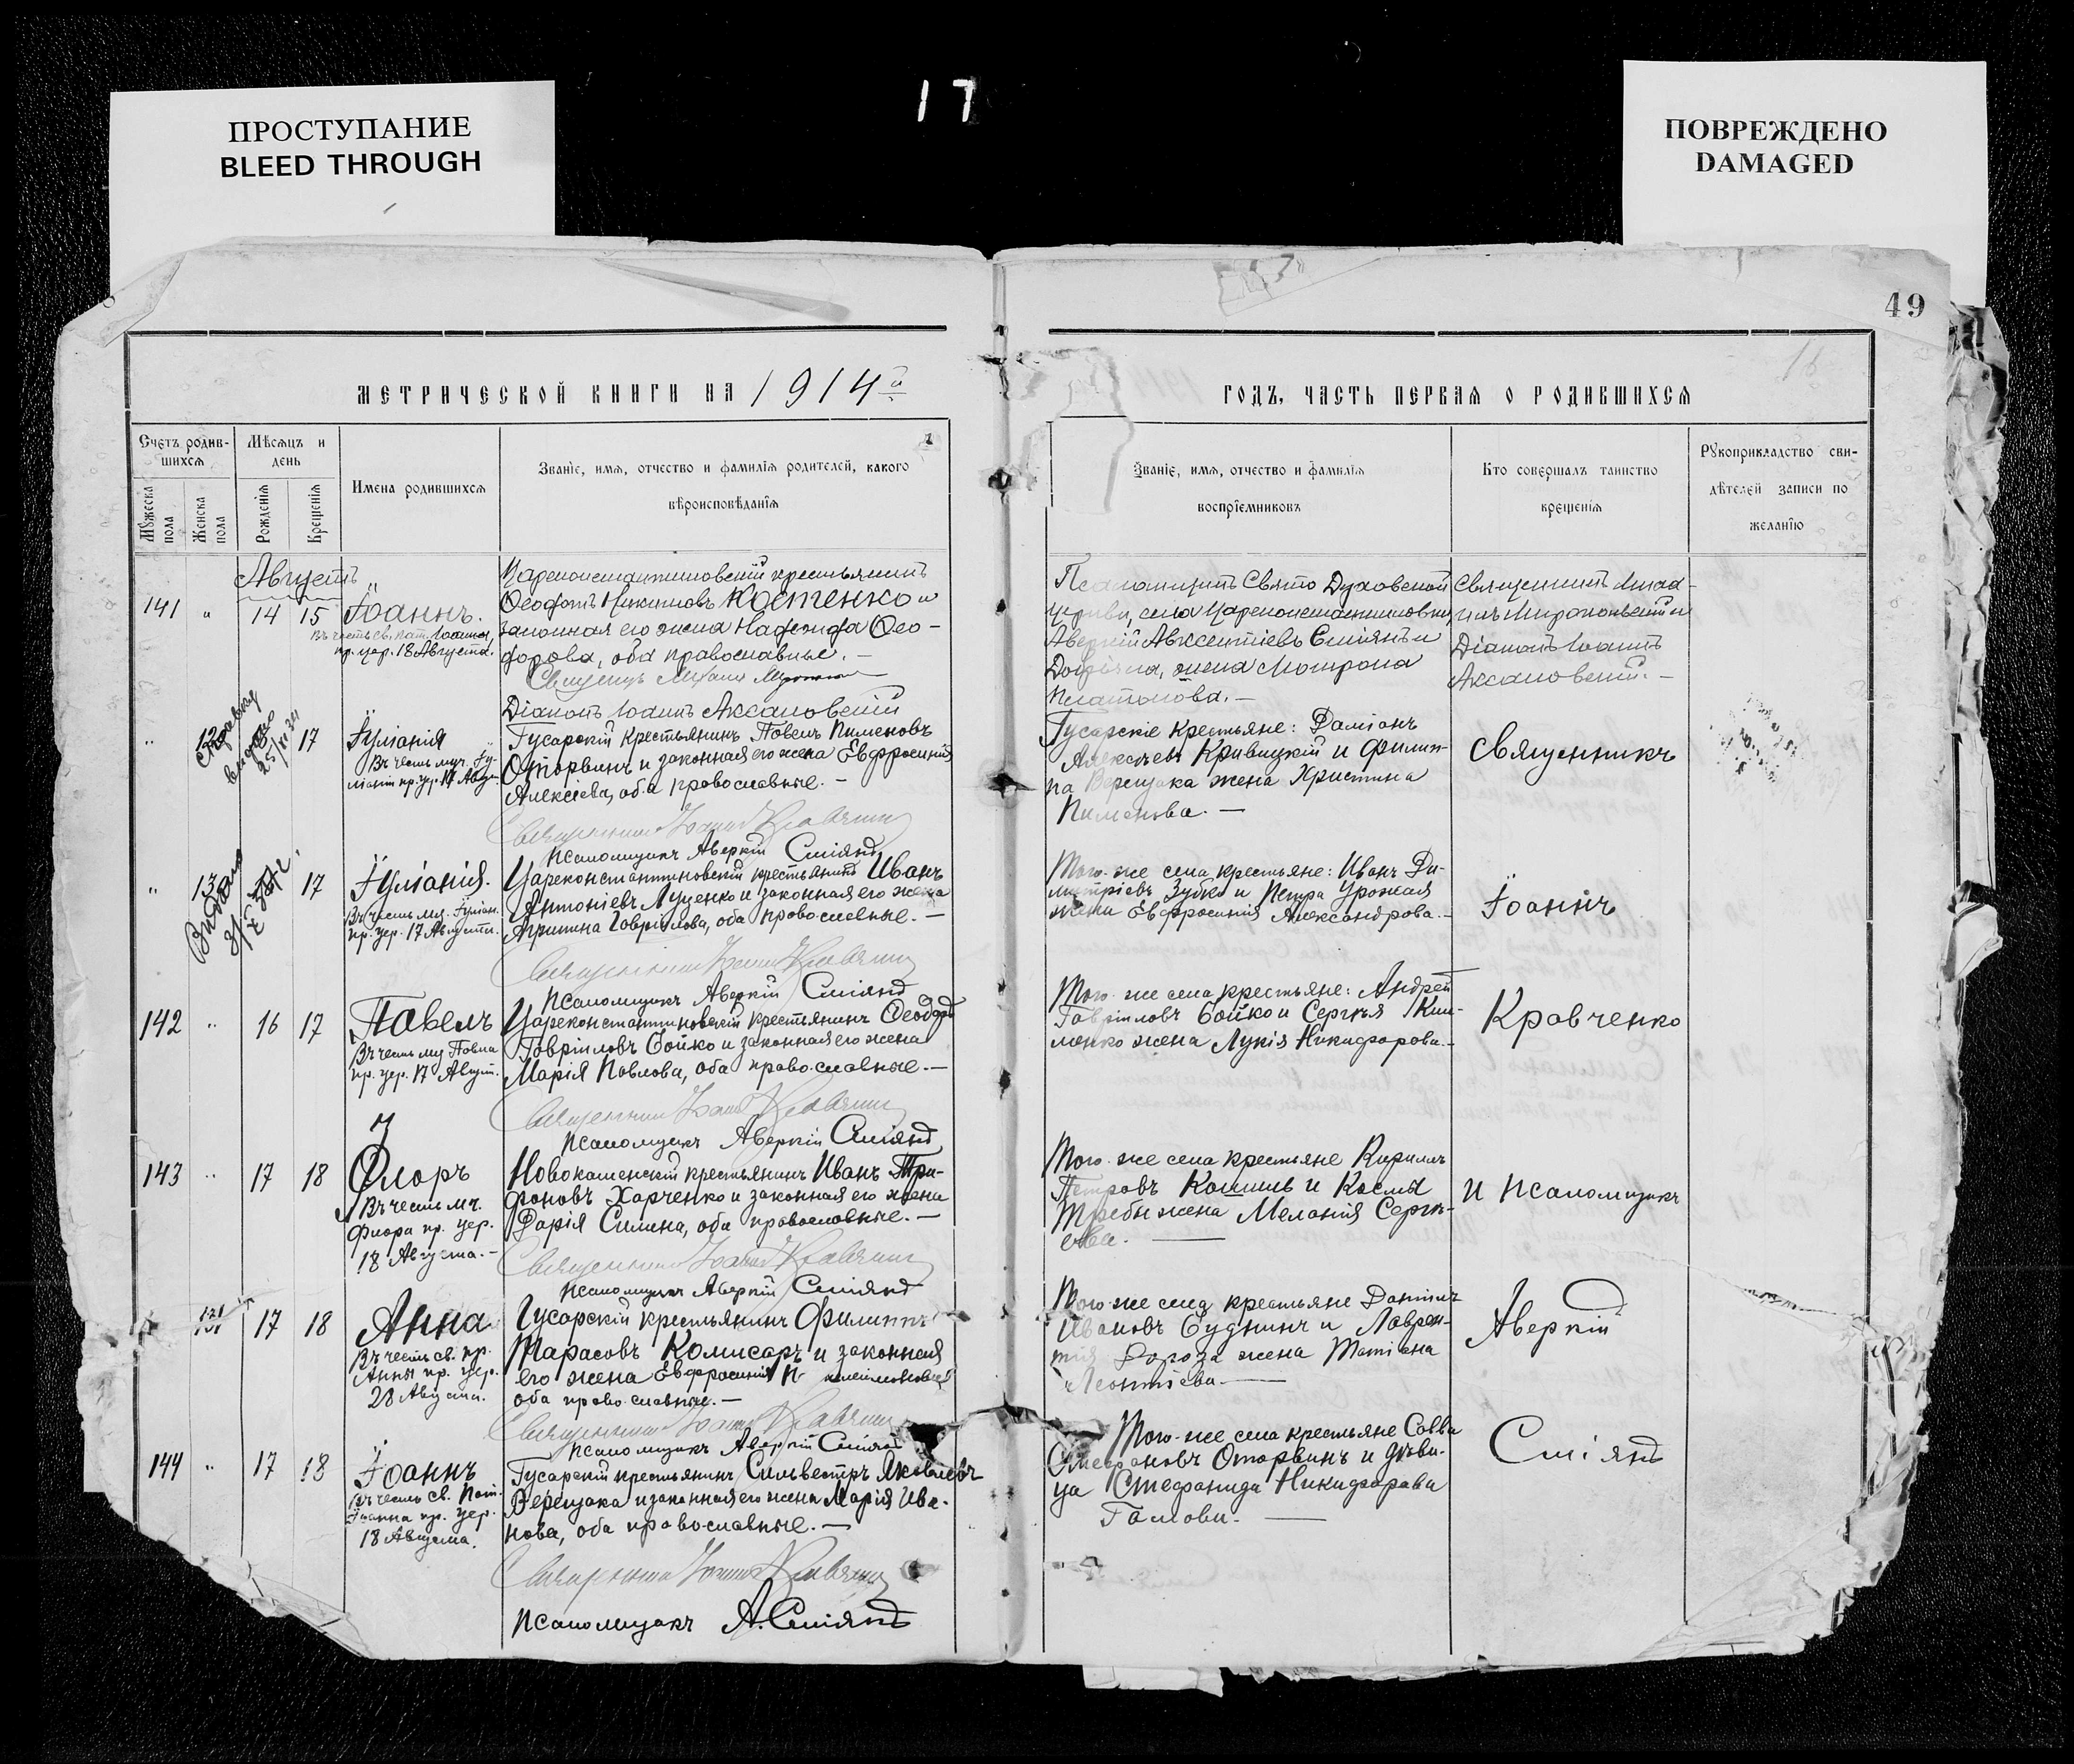 17
ПРОСТУПАНИЕ
BLEED THROUGH
ПОВРЕЖДЕНО
DAMAGED
49
МЕТРИЧЕСКОЙ КНИГИ НА 1914й
ГОДЪ, ЧАСТЬ ПЕРВАЯ О РОДИВШИХСЯ
Счетъ родив-
шихся
Мужеска пола
Женска пола
Мѣсяцъ и
день
Рожденія
Крещенія
Имена родившихся
Званіе, имя, отчество и фамилія родителей, какого
вѣроисповѣданія
Званіе, имя, отчество и фамилія
воспріемниковъ
Кто совершалъ таинство
крещенія
Рукоприкладство сви-
дѣтелей записи по
желанію
Августъ
141 " 14 15 Іоаннъ.
Въ честь св. пат. Іоанна,
пр. цер. 18 Августа.
Цареконстантиновскій крестьянинъ
Ѳеофанъ Никитовъ Костенко и
законная его жена Надежда Ѳео-
дорова, оба православные. —
Священ. Михаилъ
Діаконъ Іоаннъ Аксановскій
Псаломщикъ Свято Духовской
церкви, села Цареконстантиновки,
Аверкій Авксентіевъ Сміянъ и
жена Мотрона
Платонова. —
Священникъ Миха-
илъ и
Діаконъ Іоаннъ
Аксановскій. —
" 17 Іуліанія
Въ честь муч. Іу-
ліаніи пр. цер. 17 Авгу.
Справку
выдано
Гусарскій крестьянинъ Павелъ Пименовъ
Оторвинъ и законная его жена Евфросинія
Алексѣева, оба православные. —
Священникъ Іоаннъ Кравченко
Псаломщикъ Аверкій Сміянъ
Гусарскіе крестьяне: Даміанъ
Алексѣевъ Кривицкій и Филип-
па Верещака жена Христина
Пименова. —
Священникъ
" 17 Іуліанія.
Въ честь муч. Іуліан.
пр. цер. 17 Августа.
Видано
Цареконстантиновскій крестьянинъ Иванъ
Антоніевъ Луценко и законная его жена
Агрипина Гавріилова, оба православные. —
Священникъ Іоаннъ Кравченко
Псаломщикъ Аверкій Сміянъ
Того-же села крестьяне: Иванъ Ди-
митріевъ Зубко и Петра Урожая
жена Евфросинія Александрова. —
Іоаннъ
142 " 16 17 Павелъ
Въ честь му. Павла
пр. цер. 17 Август.
Цареконстантиновскій крестьянинъ Ѳеодоръ
Гавріиловъ Бойко и законная его жена
Марія Павлова, оба православные. —
Священникъ Іоаннъ Кравченко
Псаломщикъ Аверкій Сміянъ
Того-же села крестьяне: Андрей
Гавріиловъ Бойко и Сергѣя Кли-
менко жена Лукія Никифорова. —
Кравченко
143 " 17 18 Флоръ
Въ честь мч.
Флора пр. цер.
18 Августа. —
Новокаменскій крестьянинъ Иванъ Три-
фоновъ Харченко и законная его жена
Дарія Силина, оба православные. —
Священникъ Іоаннъ Кравченко
Псаломщикъ Аверкій Сміянъ
Того-же села крестьяне Кирилъ
Петровъ Кошиль и Космы
жена Меланія Сергѣ-
ева. —
и псаломщикъ
131 17 18 Анна
Въ честь св. пр.
Анны пр. цер.
28 Августа.
Гусарскій крестьянинъ Филиппъ
Тарасовъ Комисаръ и законная
его жена Евфросинія
оба православные. —
Священникъ Іоаннъ Кравченко
Псаломщикъ Аверкій Сміянъ
Того-же села крестьяне Даніилъ
Ивановъ Буднинъ и Лаврен-
тія жена Татіана
Леонтіева. —
Аверкій
144 " 17 18 Іоаннъ
Въ честь св. Пат.
Іоанна пр. цер.
18 Августа.
Гусарскій крестьянинъ Сильвестръ Яковлевъ
Верещака и законная его жена Марія Ива-
нова, оба православные. —
Священникъ Іоаннъ Кравченко
Псаломщикъ А. Сміянъ
Того-же села крестьяне Савва
Стефановъ Оторвинъ и дѣви-
ца Стефанида Никифорова
Сміянъ